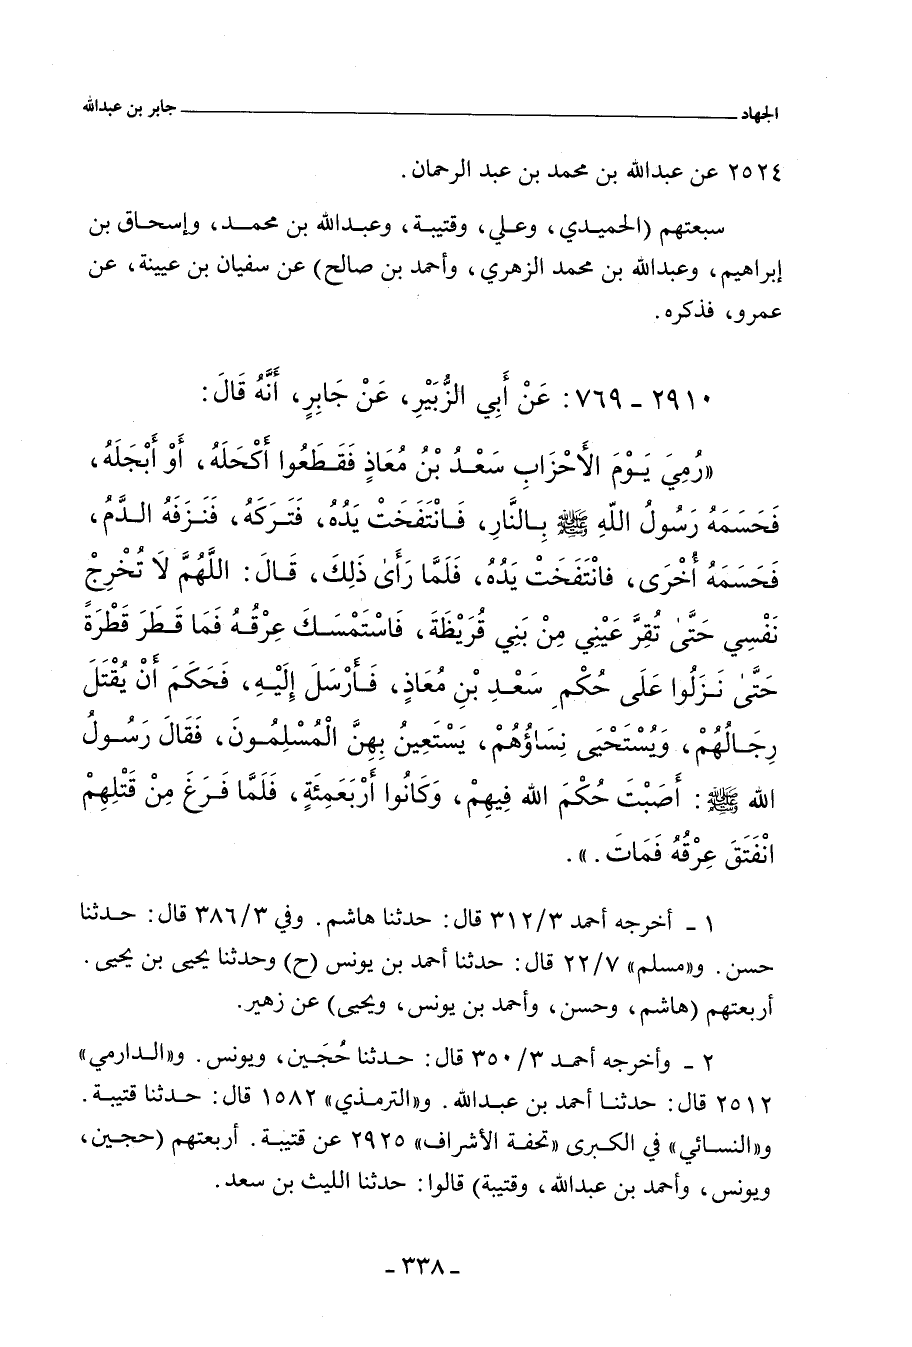 الجهاد ــــــــــــــــــــــــــــــــــــــــ جابر بن عبدالله
٢٥٢٤ عن عبدالله بن محمد بن عبد الرحمان .
سبعتهم (الحميدي، وعلي، وقتيبة، وعبدالله بن محمد، وإسحاق بن
إبراهيم، وعبدالله بن محمد الزهري، وأحمد بن صالح) عن سفيان بن عيينة، عن
عمرو، فذكره .
٢٩١٠ - ٧٦٩: عَنْ أَبِي الزُّبَيْرِ، عَنْ جَابِرٍ، أَنَّهُ قَالَ:
«رُمِيَ يَوْمَ الأَحْزَابِ سَعْدُ بْنُ مُعَاذٍ فَقَطَعُوا أَكْحَلَهُ، أَوْ أَبْجَلَهُ،
فَحَسَمَهُ رَسُولُ اللهِ ﷺ بِالنَّارِ، فَانْتَفَخَتْ يَدُهُ، فَتَرَكَهُ، فَنَزَفَهُ الدَّمُ،
فَحَسَمَهُ أُخْرَى، فانْتَفَخَتْ يَدُهُ، فَلَمَّا رَأَىٰ ذَلِكَ، قَالَ: اللَّهُمَّ لَا تُخْرِجْ
نَفْسِي حَتَّىٰ تُقِرَّ عَيْنِي مِنْ بَنِي قُرَيْظَةَ، فَاسْتَمْسَكَ عِرْقُهُ فَمَا قَطَرَ قَطْرَةً
حَتَّىٰ نَزَلُوا عَلَى حُكْمِ سَعْدِ بْنِ مُعَاذٍ، فَأَرْسَلَ إِلَيْهِ، فَحَكَمَ أَنْ يُقْتَلَ
رِجَالُهُمْ، وَيُسْتَحْيَى نِسَاؤُهُمْ، يَسْتَعِينُ بِهِنَّ الْمُسْلِمُونَ، فَقَالَ رَسُولُ
الله ﷺ: أَصَبْتَ حُكْمَ الله فِيهِمْ، وَكَانُوا أَرْبَعَمِئَةٍ، فَلَمَّا فَرَغَ مِنْ قَتْلِهِمْ
انْفَتَقَ عِرْقُهُ فَمَاتَ .» .
١ - أخرجه أحمد ٣١٢/٣ قال: حدثنا هاشم. وفي ٣٨٦/٣ قال: حدثنا
حسن. و«مسلم» ٢٢/٧ قال: حدثنا أحمد بن يونس (ح) وحدثنا يحيى بن يحيى.
أربعتهم (هاشم، وحسن، وأحمد بن يونس، ويحيى) عن زهير.
٢ - وأخرجه أحمد ٣٥٠/٣ قال: حدثنا حُجَين، ويونس. و«الدارمي»
٢٥١٢ قال: حدثنا أحمد بن عبدالله. و«الترمذي» ١٥٨٢ قال: حدثنا قتيبة.
و«النسائي» في الكبرى «تحفة الأشراف» ٢٩٢٥ عن قتيبة. أربعتهم (حجين،
ويونس، وأحمد بن عبدالله، وقتيبة) قالوا: حدثنا الليث بن سعد.
- ٣٣٨ -